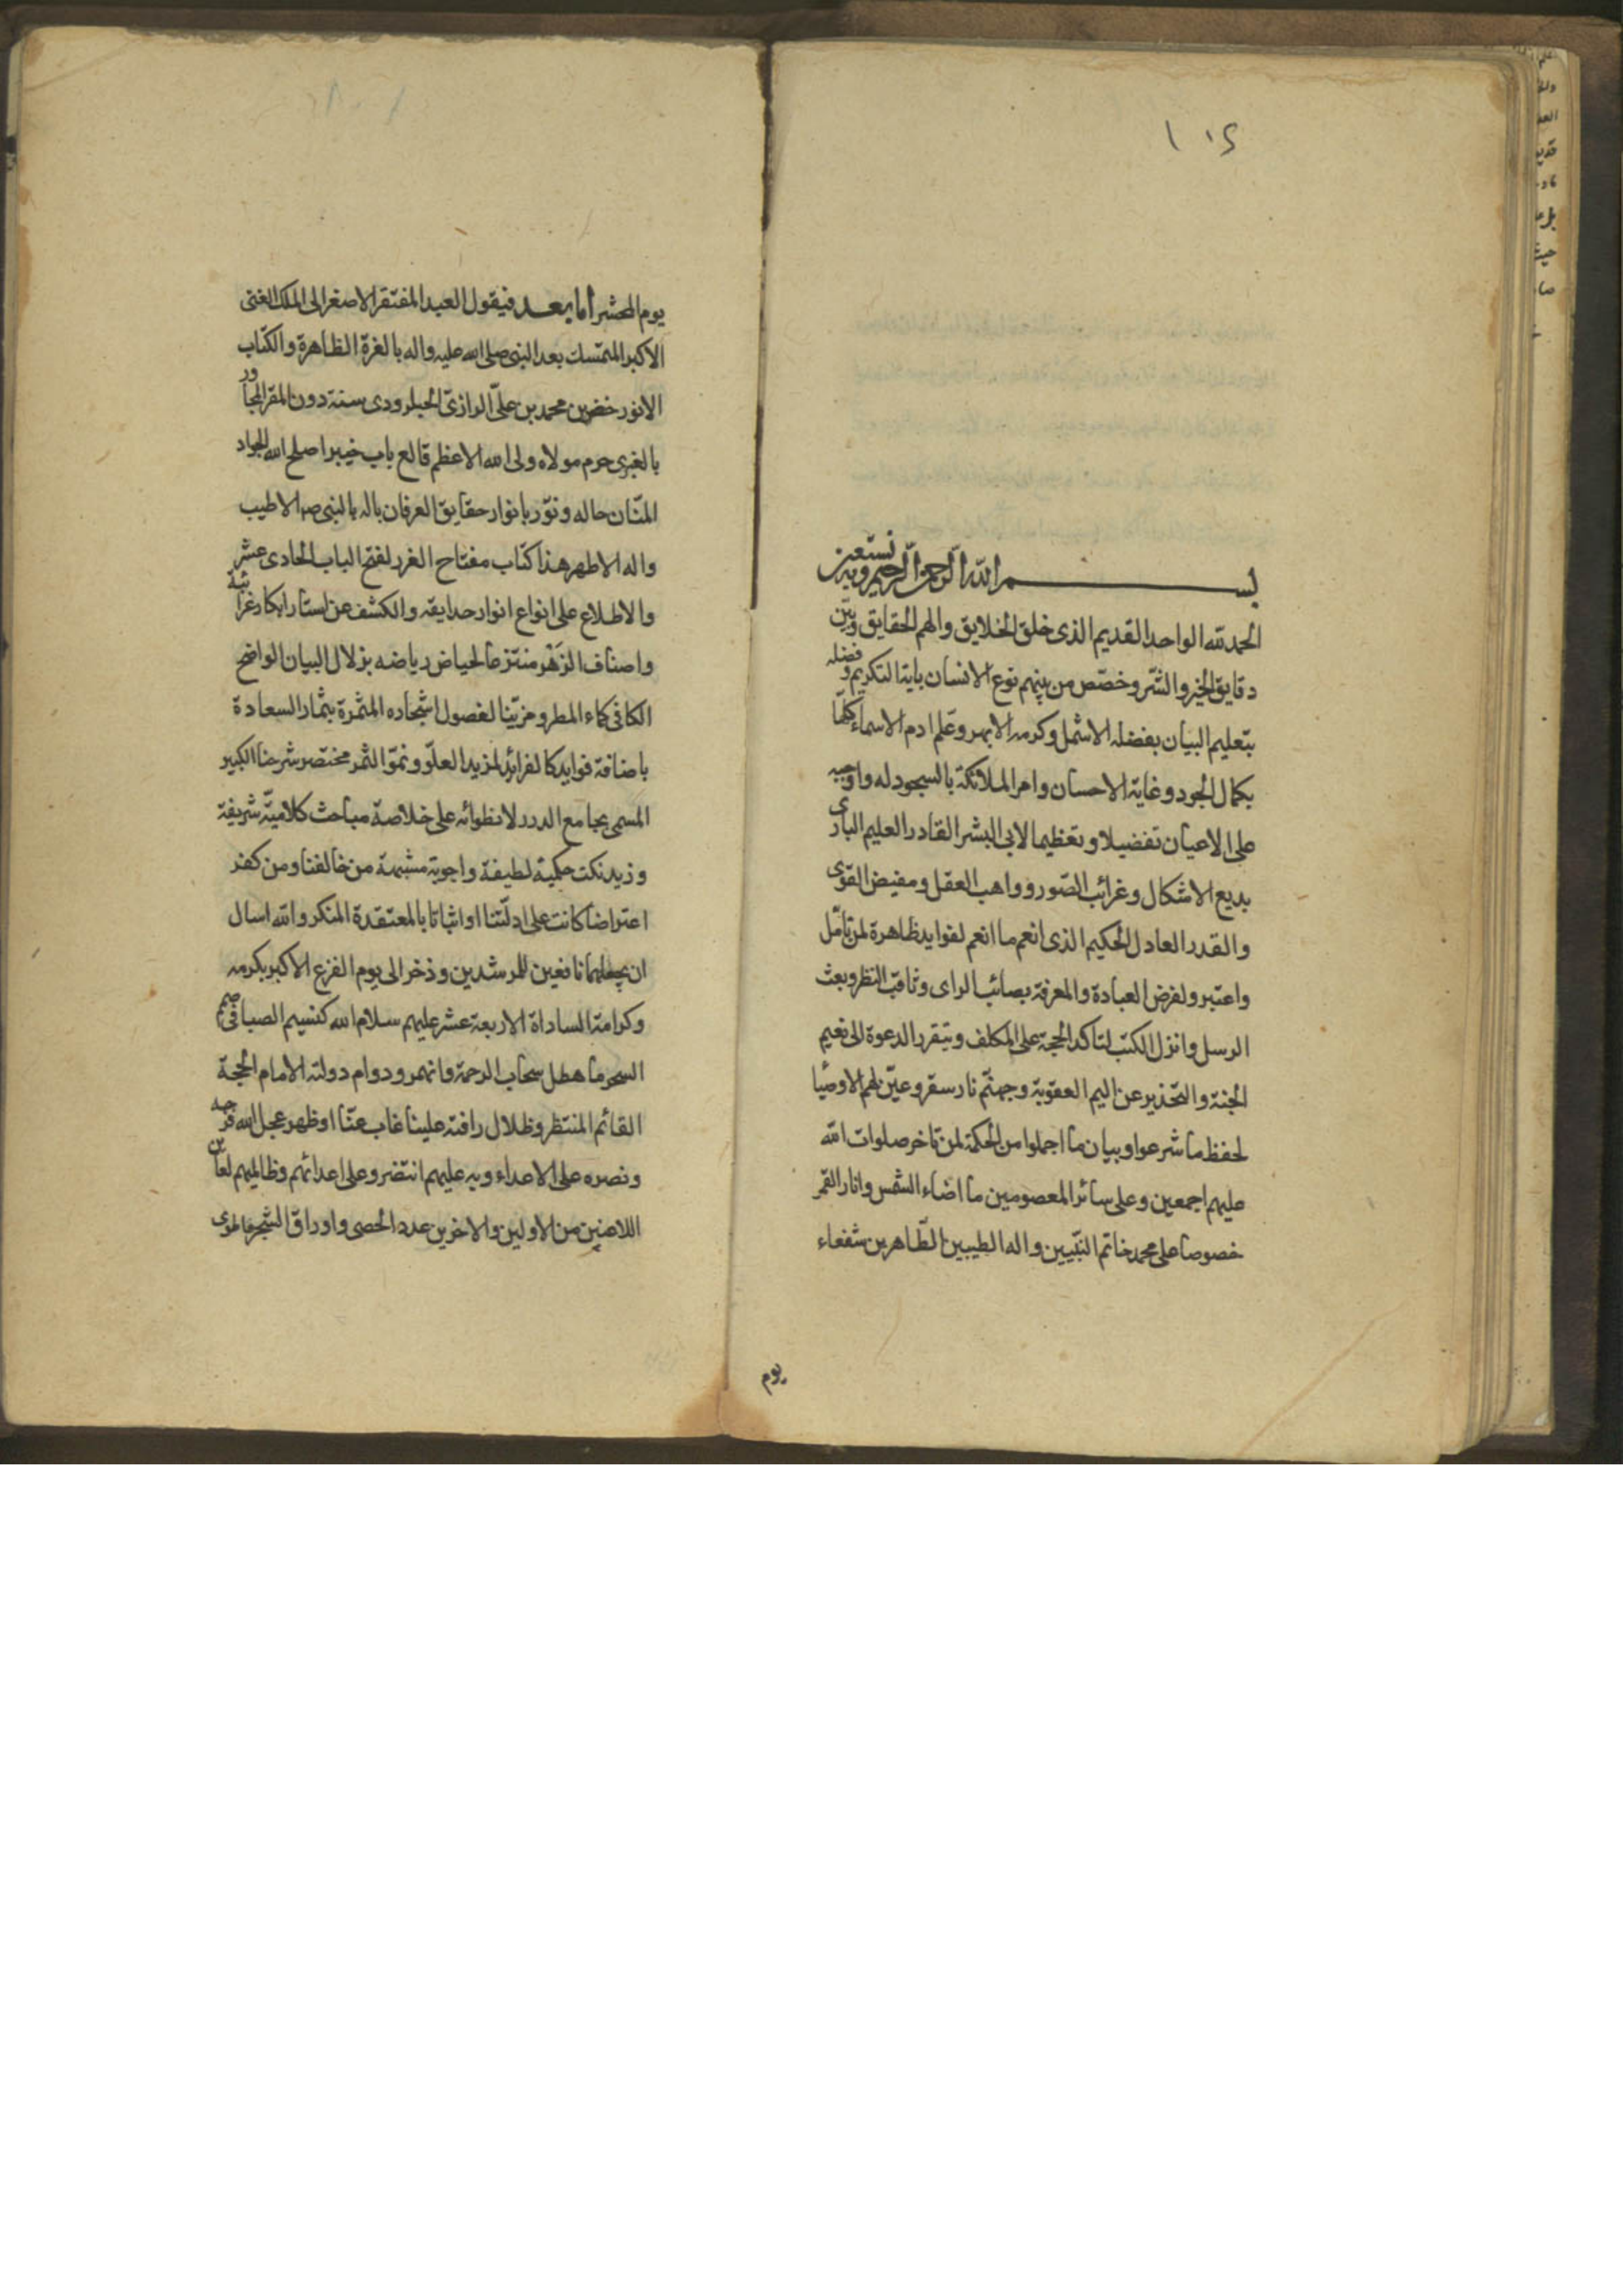 بسم الله الرحمن الرحيم وبه نستعين
الحمد لله الواحد القديم الذى خلق الخلايق والهم الحقايق وبيّن
دقايق الخير والشر وخصّص من بينهم نوع الانسان باية التكريم وفضله
بتعليم البيان بفضله الاشمل وكرمه الابهر وعلم ادم الاسماء كلّها
بكمال الجود وغاية الاحسان وامر الملائكة بالسجود له واوجبه
على الاعيان تفضيلا وتعظيما لابى البشر القادر العليم البارى
بديع الاشكال وغرائب الصّور وواهب العقل ومفيض القوى
والقدر العادل الحكيم الذى انعم ما انعم لفوايد ظاهرة لمن تامّل
واعتبر ولفرض العبادة والمعرفة بصائب الراى وثاقب النظر وبعث
الرسل وانزل الكتب لتاكد الحجة على المكلف وتيقرر الدعوة الى نعيم
الجنة والتحذير عن اليم العقوبة وجهنّم نار سقر وعيّن لهم الاوصيا
لحفظ ما شرعوا وبيان ما اجملوا من الحكمة لمن تاخر صلوات الله
عليهم اجمعين وعلى سائر المعصومين ما اضاء الشمس وانار القمر
خصوصا على محمد خاتم النبّيين واله الطيبين الطّاهرين شفعاء
يوم
يوم المحشر أما بعد فيقول العبد المفتقر الاصغر الى الملك الغنى
الاكبر المتمسك بعد النبى صلى الله عليه واله بالغرة الظاهرة والكتاب
الانور خضر بن محمد بن علىّ الرازىّ الحبلرودى سنة دون المقر المجاور
بالغرى حرم مولاه ولى الله الاعظم قالع باب خيبر اصلح الله الجواد
المنّان حاله ونوّر بانوار حقايق العرفان باله بالنبى الاطيب
واله الاطهر هذا كتاب مفتاح الغرر لفتح الباب الحادى عشر
والاطلاع على انواع انوار حدايقه والكشف عن استار ابكار غرائبة
واصناف الزَهْر منتزعا لحياض رياضه بزلال البيان الواضح
الكافى كماء المطر ومزيّنا لفصول اشجاره المثمرة بثمار السعادة
باضافة فوايد كالفرائد لمزيد العلوّ ونموّ الثمر مختصر شرحنا الكبير
المسمى بجامع الدرر لانطوائه على خلاصة مباحث كلاميّة شريفة
وزيد نكت حكمية لطيفة واجوبة مشبهة من خالفنا ومن كفر
اعتراضا كانت على ادلّتنا او اثباتا بالمعتقدة المنكر والله اسال
ان يجعلهما نافعين للمرشدين وذخرا الى يوم الفزع الاكبر بكرمه
وكرامة الساداة الاربعة عشر عليهم سلام الله كنسيم الصبا فى
السحر ما هطل سحاب الرحمة وانهمر ودوام دولته الامام الحجة
القائم المنتظر وظلال رافته علينا غاب عنّا او ظهر عجل الله فرجه
ونصره على الاعداء وبه عليهم انتصر وعلى اعدائهم وظالميهم لعاين
اللاعنين من الاولين والاخرين عدد الحصى واوراق الشجر